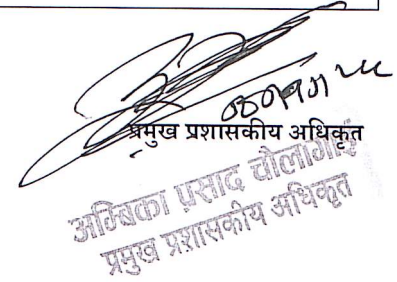 प्रमुख प्रशासकीय अधिकृत
अम्बिका प्रसाद चौलागाई
प्रमुख प्रशासकीय अधिकृत